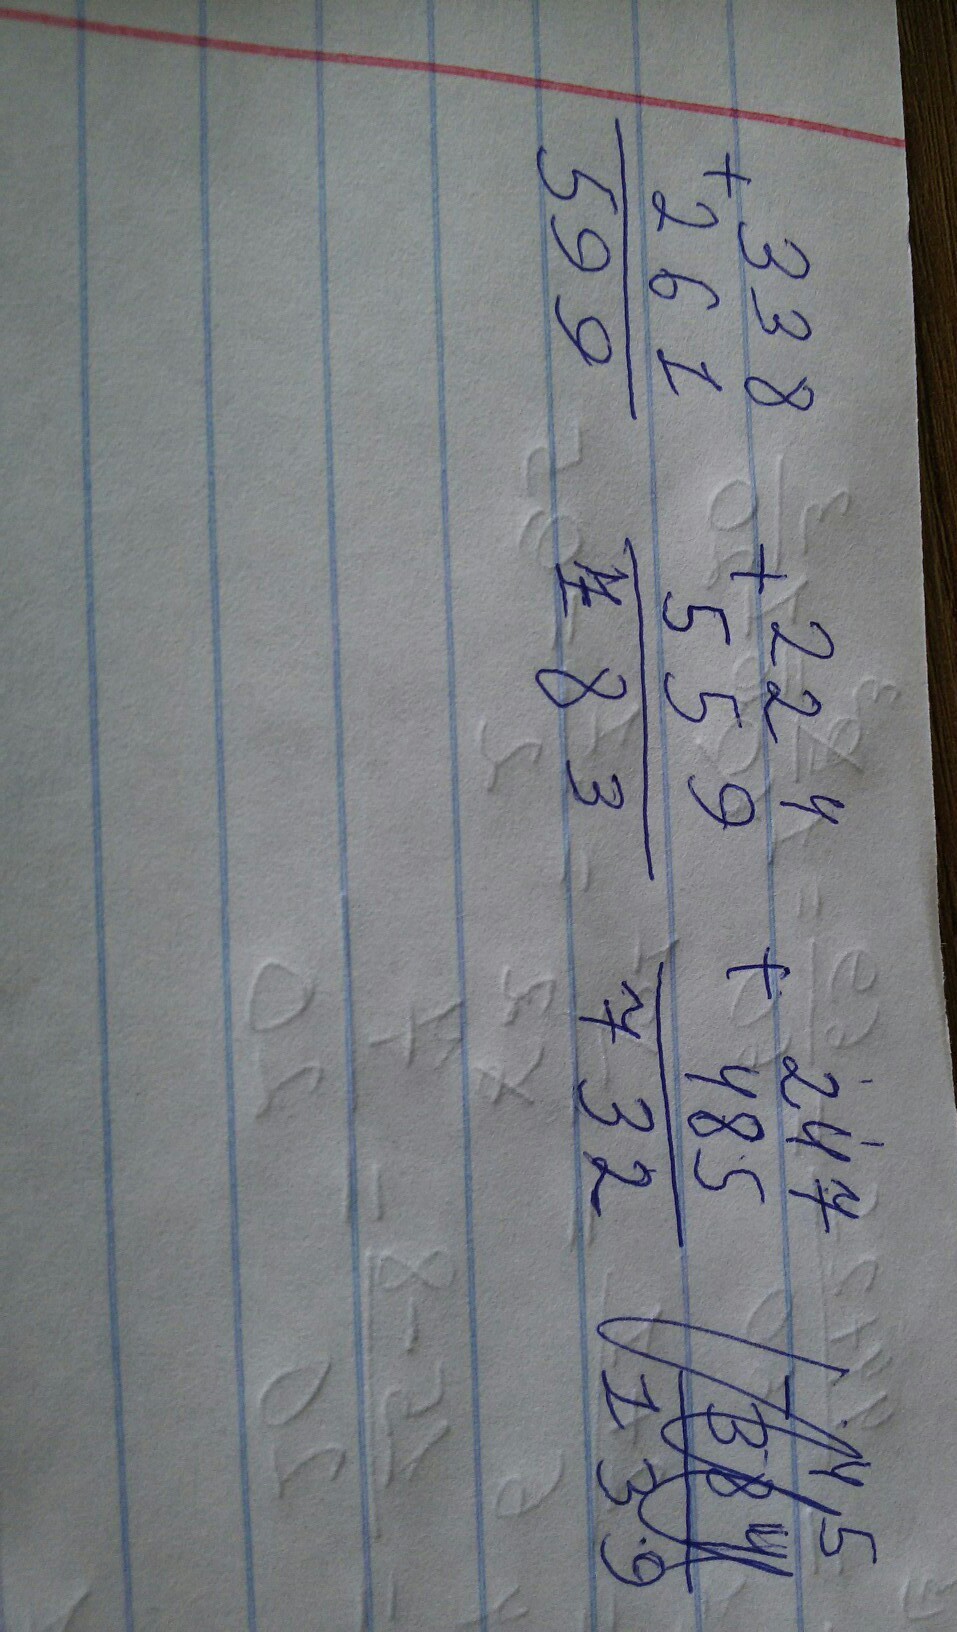 + 338
261
599
+ 224
559
783
+ 247
485
732
139